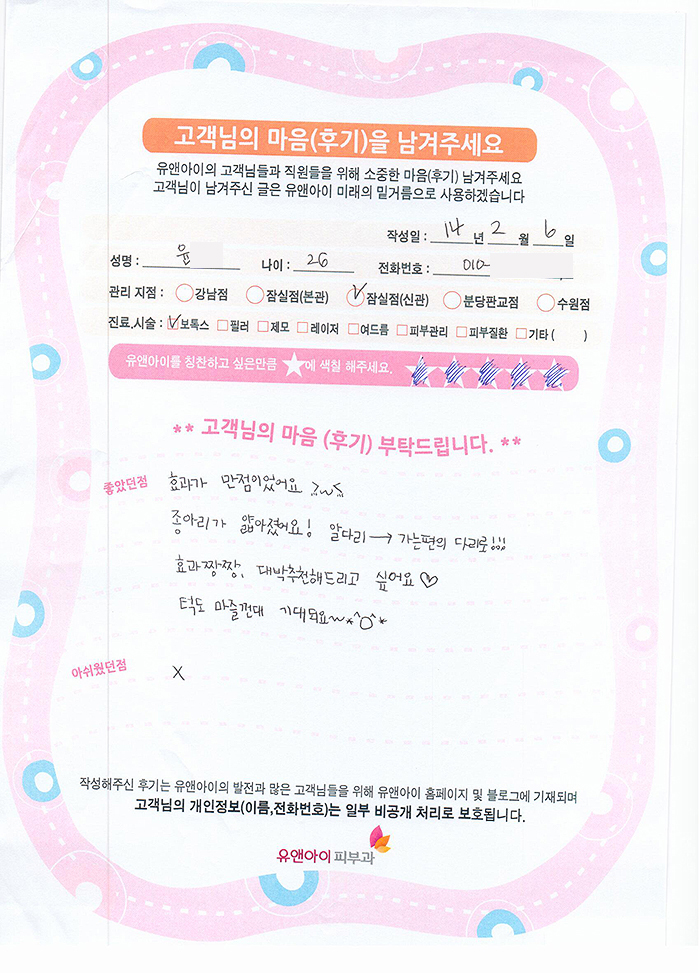 고객님의 마음(후기)을 남겨주세요
유앤아이의 고객님들과 직원들을 위해 소중한 마음(후기) 남겨주세요
고객님이 남겨주신 글은 유앤아이 미래의 밑거름으로 사용하겠습니다
작성일 : 14 년 2 월 6 일
성명 : 윤 나이 : 26 전화번호 : 010-
관리 지점 : 강남점 잠실점(본관) 잠실점(신관) 분당판교점 수원점
진료,시술 : 보톡스 필러 제모 레이저 여드름 피부관리 피부질환 기타 ( )
유앤아이를 칭찬하고 싶은만큼 ★에 색칠 해주세요.
** 고객님의 마음 (후기) 부탁드립니다. **
좋았던점 효과가 만점이었어요
종아리가 얇아졌어요! 알다리 → 가는편의 다리로!!!
효과짱짱, 대박추천해드리고 싶어요♡
턱도 마즐껀대 기대되요~*^O^*
아쉬웠던점 X
작성해주신 후기는 유앤아이의 발전과 많은 고객님들을 위해 유앤아이 홈페이지 및 블로그에 기재되며
고객님의 개인정보(이름,전화번호)는 일부 비공개 처리로 보호됩니다.
유앤아이 피부과